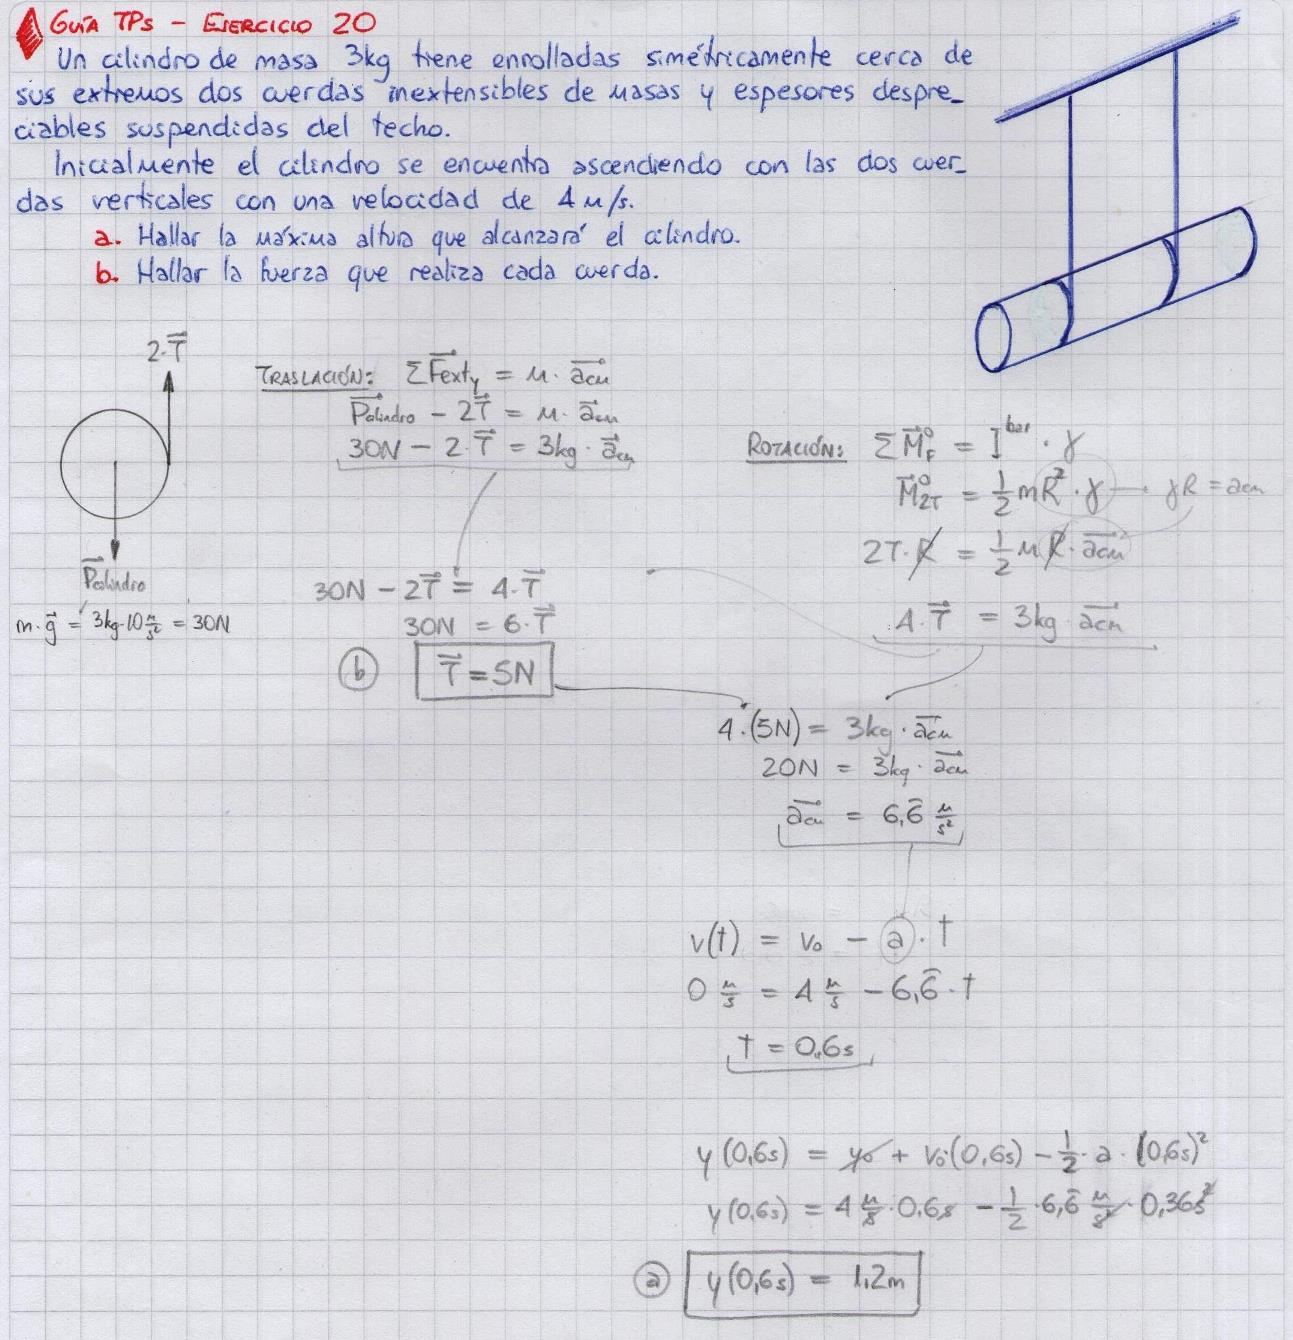 GUÍA TPs - EJERCICIO 20
Un cilindro de masa 3kg tiene enrolladas simétricamente cerca de
sus extremos dos cuerdas inextensibles de masas y espesores despre_
ciables suspendidas del techo.
Inicialmente el cilindro se encuentra ascendiendo con las dos cuer_
das verticales con una velocidad de 4 m/s.
a. Hallar la máxima altura que alcanzará el cilindro.
b. Hallar la fuerza que realiza cada cuerda.
2·T⃗
P⃗cilindro
m·g⃗ = 3kg·10 m/s² = 30N
TRASLACIÓN: ΣF⃗exty = m·a⃗cm
P⃗cilindro - 2T⃗ = m·a⃗cm
30N - 2·T⃗ = 3kg·a⃗cm
30N - 2T⃗ = 4·T⃗
30N = 6·T⃗
b T⃗ = 5N
ROTACIÓN: ΣM⃗F° = I^bar·γ
M⃗2T° = 1/2 mR²·γ → γR = acm
2T·R = 1/2 m R·a⃗cm
4·T⃗ = 3kg·a⃗cm
4·(5N) = 3kg·a⃗cm
20N = 3kg·a⃗cm
a⃗cm = 6,6̂ m/s²
v(t) = v₀ - a·t
0 m/s = 4 m/s - 6,6̂·t
t = 0,6s
y(0,6s) = y₀ + v₀·(0,6s) - 1/2·a·(0,6s)²
y(0,6s) = 4 m/s·0,6s - 1/2·6,6̂ m/s²·0,36s²
a y(0,6s) = 1,2m